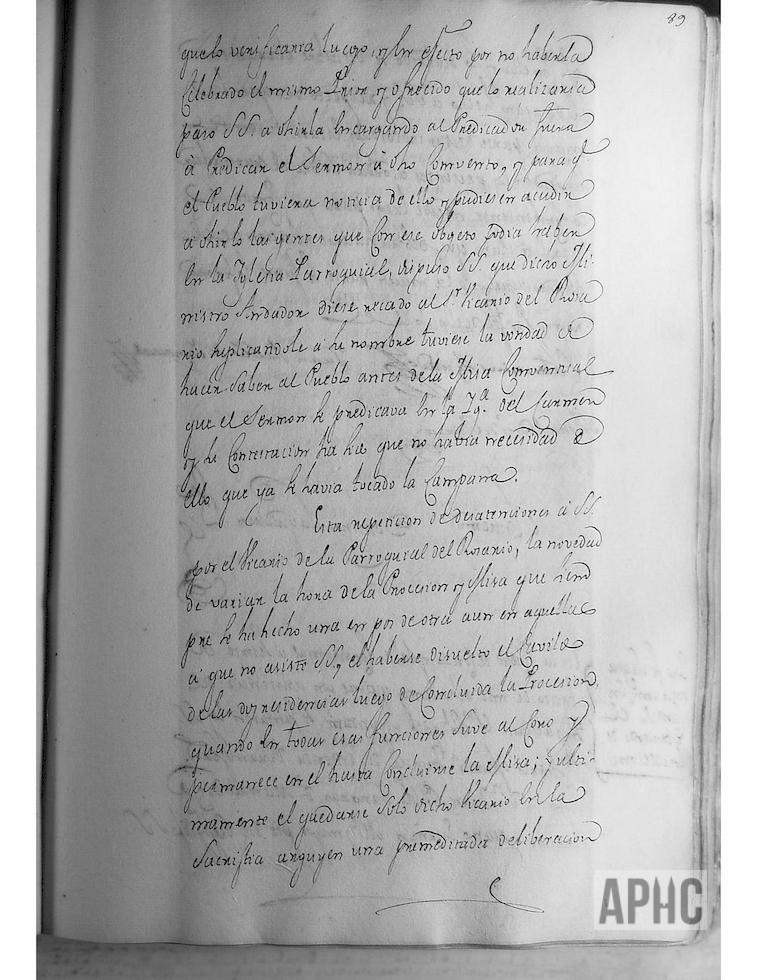 89
que lo verificaria luego, y en efecto por no haberla
Celebrado el mismo Prior y ofrecido que lo realizaria
paso SS. a ohirla encargando al Predicador fuera
à Predicar el Sermon à dho Convento, y para q.
el Pueblo tuviera noticia de ello y pudiesen acudir
a ohirlo las gentes que con ese obgeto podia haber
en la Iglesia Parroquial, dispuso SS. que dicho Mi-
nistro Andador diese recado al Sr. Vicario del Rosa
rio suplicandole a su nombre tuviese la vondad de
hacer saber al Pueblo antes de la Misa Conventual
que el Sermon se predicava en la Yg.ª del Carmen
y su Contestacion fue que no habia necesidad de
ello que ya se havia tocado la Campana.
Esta repeticion de desatenciones á SS.
por el Vicario de la Parroquial del Rosario, la novedad
de variar la hora de la Procesion y Misa que siem
pre se ha hecho una en pos de otra aun en aquellas
a que no asiste SS, el haberse disuelto el Cavildo
de las dos residencias luego de Concluida la Procesion,
quando en todas esas funciones suve al Coro y
permanece en el hasta Concluirse la Misa; y ulti-
mamente el quedarse solo dicho Vicario en la
Sacristia arguyen una premeditada deliberacion
APHC